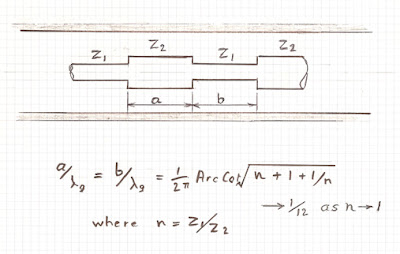 Z₁ Z₂ Z₁ Z₂
a b
a/λg = b/λg = 1/2π ArcCot √(n + 1 + 1/n)
→ 1/12 as n → 1
where n = Z₁/Z₂